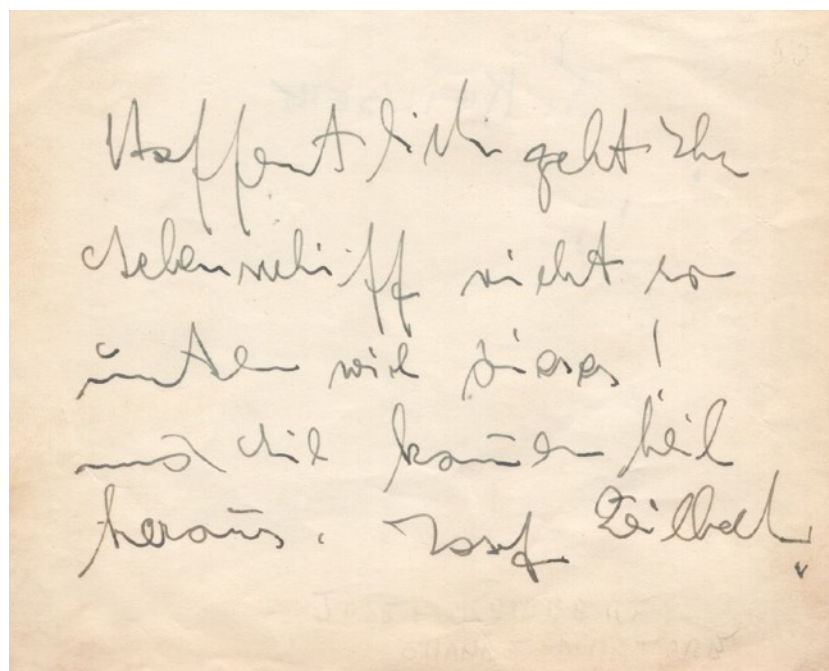 Hoffentlich geht Ihr
Lebensschiff nicht so
unter wie dieses!
und Sie kommen heil
heraus. Josef